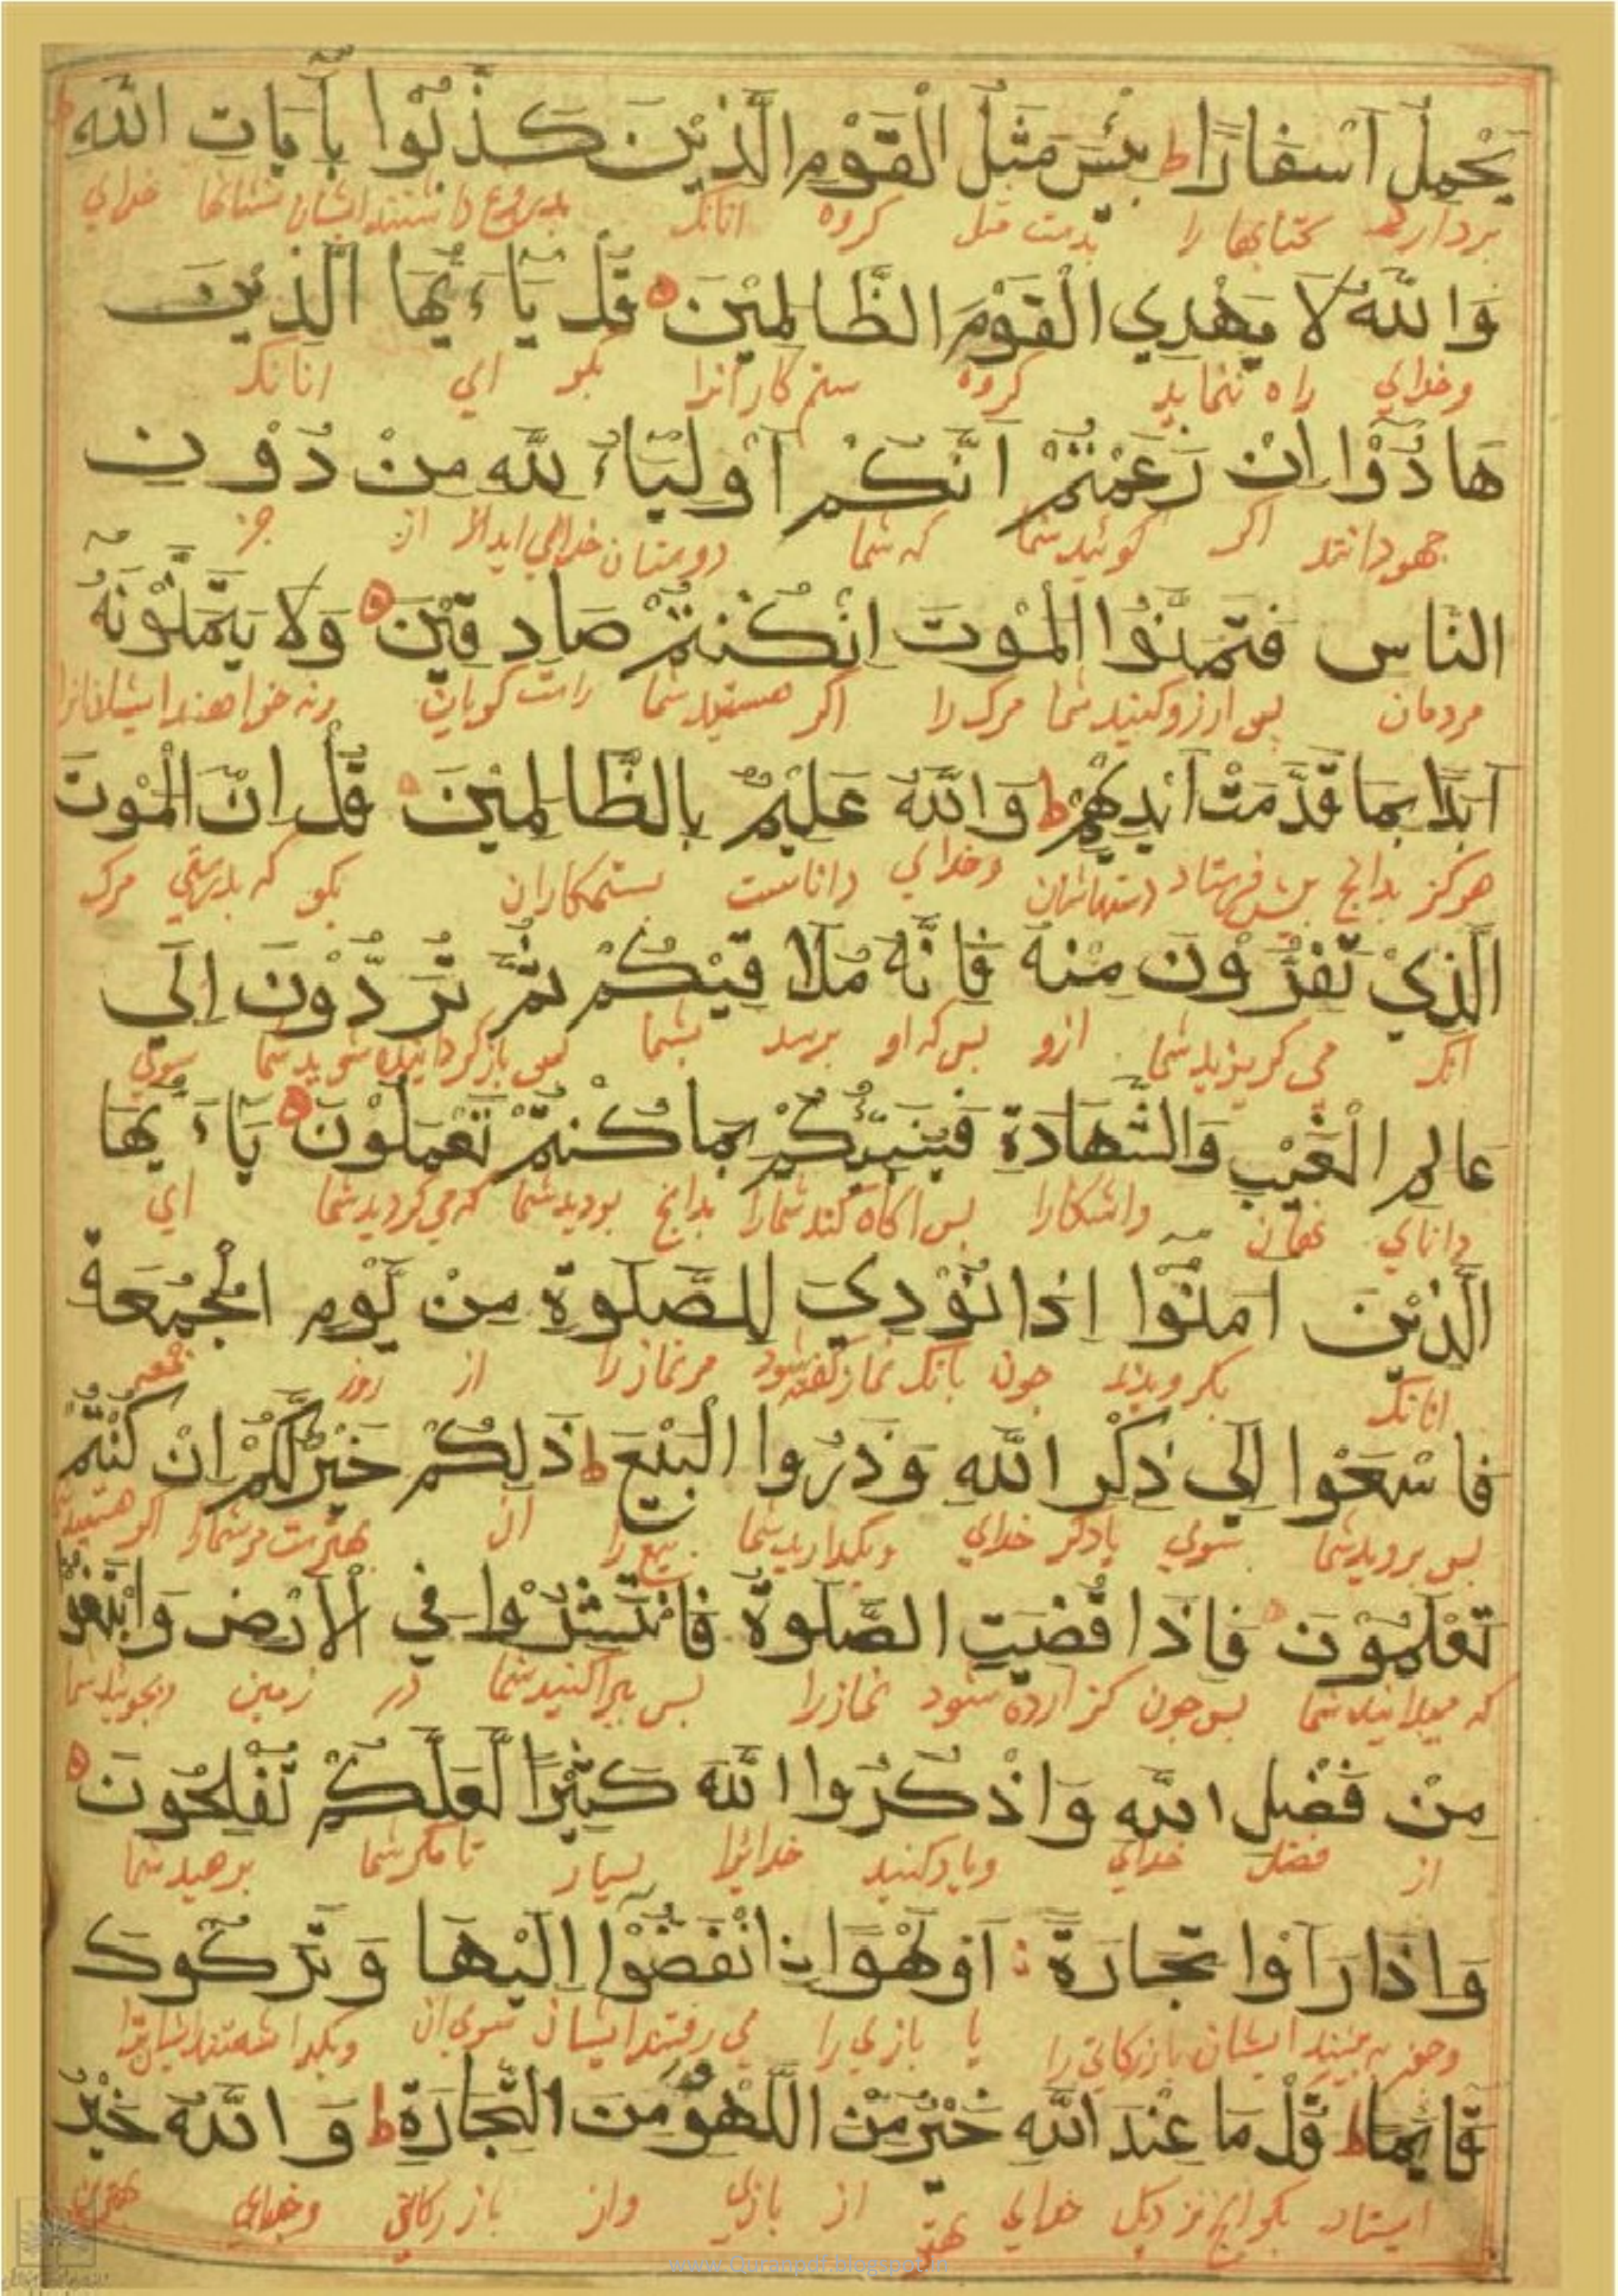 يَحْمِلُ اَسْفَارًا ط بِئْسَ مَثَلُ الْقَوْمِ الَّذِيْنَ كَذَّبُوْا بِآيَاتِ اللّٰهِ
بردارد كتابها را بدست مثل كروه انانك بدروغ داشتند ايشان نشانها خداي
وَاللّٰهُ لَا يَهْدِي الْقَوْمَ الظَّالِمِيْنَ ه قُلْ يَاءَيُّهَا الَّذِيْنَ
وخداي راه ننمايد كروه ستم كارانرا بكو اي انانك
هَادُوْا اِنْ زَعَمْتُمْ اَنَّكُمْ اَوْلِيَاءُ لِلّٰهِ مِنْ دُوْنِ
جهودانند اكر كوئيد شما كه شما دوستان خداي ايد از جز
النَّاسِ فَتَمَنَّوُا الْمَوْتَ اِنْ كُنْتُمْ صَادِقِيْنَ ه وَلَا يَتَمَنَّوْنَهُ
مردمان پس ارزو كنيد شما مرك را اكر هستيد شما راست كويان ونه خواهند ايشان انرا
اَبَدًا بِمَا قَدَّمَتْ اَيْدِيْهِمْ ط وَاللّٰهُ عَلِيْمٌ بِالظَّالِمِيْنَ ه قُلْ اِنَّ الْمَوْتَ
هركز بدانچ پيش فرستاد دستهاشان وخداي داناست بستمكاران بكو كه بدرستي مرك
الَّذِيْ تَفِرُّوْنَ مِنْهُ فَاِنَّهُ مُلَاقِيْكُمْ ثُمَّ تُرَدُّوْنَ اِلَي
انك مي كريزيد شما ازو پس كه او برسد بشما پس باز كردانيده شويد شما سوي
عَالِمِ الْغَيْبِ وَالشَّهَادَةِ فَيُنَبِّئُكُمْ بِمَا كُنْتُمْ تَعْمَلُوْنَ ه يَاءَيُّهَا
داناي نهان واشكارا پس اكاه كند شمارا بدانچ بوديد شما كه مي كرديد شما اي
الَّذِيْنَ اٰمَنُوْا اِذَا نُوْدِيَ لِلصَّلٰوةِ مِنْ يَّوْمِ الْجُمُعَةِ
انانك بكرويديد چون بانك نماز كفته شود مر نماز را از روز جمعه
فَاسْعَوْا اِلٰي ذِكْرِ اللّٰهِ وَذَرُوا الْبَيْعَ ط ذٰلِكُمْ خَيْرٌ لَّكُمْ اِنْ كُنْتُمْ
پس برويد شما سوي ياد كر خداي وبكذاريد شما بيع را ان بهترست مر شمارا اكر هستيد شما
تَعْلَمُوْنَ ه فَاِذَا قُضِيَتِ الصَّلٰوةُ فَانْتَشِرُوْا فِي الْاَرْضِ وَابْتَغُوْا
كه ميدانيد شما پس چون كزارده شود نماز را پس بپراكنيد شما در زمين وبجوئيد شما
مِنْ فَضْلِ اللّٰهِ وَاذْكُرُوا اللّٰهَ كَثِيْرًا لَّعَلَّكُمْ تُفْلِحُوْنَ ه
از فضل خداي وياد كنيد خدائرا بسيار تا مكر شما برهيد شما
وَاِذَا رَاَوْا تِجَارَةً اَوْ لَهْوًا انْفَضُّوْا اِلَيْهَا وَتَرَكُوْكَ
وچون بينند ايشان بازركاني را يا بازي را مي رفتند ايشان سوي ان وبكذاشتند ايشان ترا
قَائِمًا ط قُلْ مَا عِنْدَ اللّٰهِ خَيْرٌ مِّنَ اللَّهْوِ وَمِنَ التِّجَارَةِ ط وَاللّٰهُ خَيْرُ
ايستاد بكو انچ نزديك خداي بهتر از بازي واز بازركاني وخداي بهترين
www.Quranpdf.blogspot.in